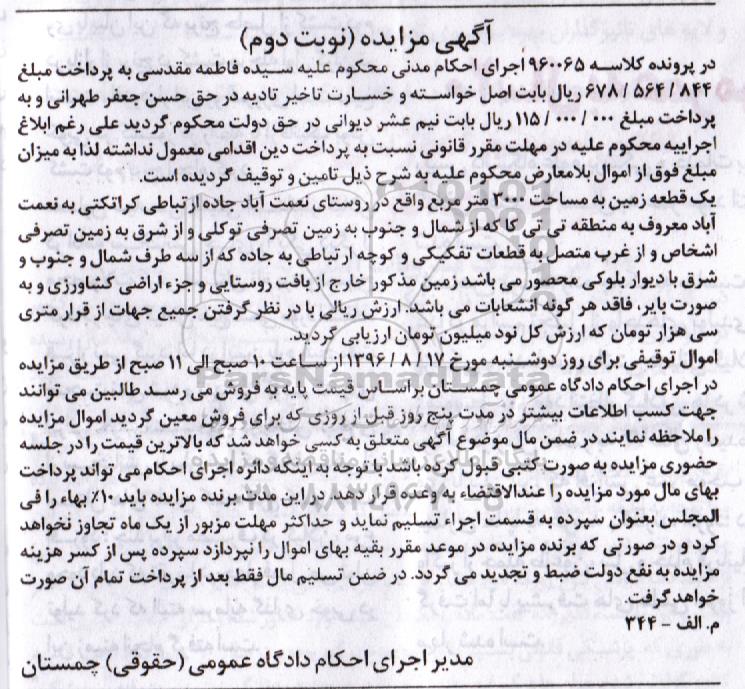 آگهی مزایده (نوبت دوم)
در پرونده کلاسه ۹۶۰۰۶۵ اجرای احکام مدنی محکوم علیه سیده فاطمه مقدسی به پرداخت مبلغ
۶۷۸/۵۶۴/۸۴۴ ریال بابت اصل خواسته و خسارت تاخیر تادیه در حق حسن جعفر طهرانی و به
پرداخت مبلغ ۱۱۵/۰۰۰/۰۰۰ ریال بابت نیم عشر دیوانی در حق دولت محکوم گردید علی رغم ابلاغ
اجراییه محکوم علیه در مهلت مقرر قانونی نسبت به پرداخت دین اقدامی معمول نداشته لذا به میزان
مبلغ فوق از اموال بلامعارض محکوم علیه به شرح ذیل تامین و توقیف گردیده است.
یک قطعه زمین به مساحت ۳۰۰۰ متر مربع واقع در روستای نعمت آباد جاده ارتباطی کراتکتی به نعمت
آباد معروف به منطقه تی تی کا که از شمال و جنوب به زمین تصرفی توکلی و از شرق به زمین تصرفی
اشخاص و از غرب متصل به قطعات تفکیکی و کوچه ارتباطی به جاده که از سه طرف شمال و جنوب و
شرق با دیوار بلوکی محصور می باشد زمین مذکور خارج از بافت روستایی و جزء اراضی کشاورزی و به
صورت بایر، فاقد هر گونه انشعابات می باشد. ارزش ریالی با در نظر گرفتن جمیع جهات از قرار متری
سی هزار تومان که ارزش کل نود میلیون تومان ارزیابی گردید.
اموال توقیفی برای روز دوشنبه مورخ ۱۳۹۶/۸/۱۷ از ساعت ۱۰ صبح الی ۱۱ صبح از طریق مزایده
در اجرای احکام دادگاه عمومی چمستان براساس قیمت پایه به فروش می رسد. طالبین می توانند
جهت کسب اطلاعات بیشتر در مدت پنج روز قبل از روزی که برای فروش معین گردید اموال مزایده
را ملاحظه نمایند در ضمن مال موضوع آگهی متعلق به کسی خواهد شد که بالاترین قیمت را در جلسه
حضوری مزایده به صورت کتبی قبول کرده باشد. با توجه به اینکه دائره اجرای احکام می تواند پرداخت
بهای مال مورد مزایده را عندالاقتضاء به وعده قرار دهد. در این مدت برنده مزایده باید ۱۰٪ بهاء را فی
المجلس بعنوان سپرده به قسمت اجراء تسلیم نماید و حداکثر مهلت مزبور از یک ماه تجاوز نخواهد
کرد و در صورتی که برنده مزایده در موعد مقرر بقیه بهای اموال را نپردازد سپرده پس از کسر هزینه
مزایده به نفع دولت ضبط و تجدید می گردد. در ضمن تسلیم مال فقط بعد از پرداخت تمام آن صورت
خواهد گرفت.
م. الف - ۳۴۴
مدیر اجرای احکام دادگاه عمومی (حقوقی) چمستان
ParsNamadData